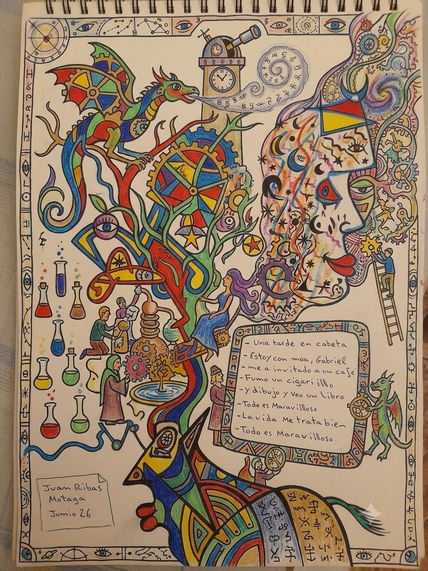 - Una tarde en cabeta
- Estoy con moa, Gabriel
- me a invitado a un cafe
- Fumo un cigarillo
- y dibujo y veo un libro
- Todo es Maravilloso
- La vida Me trata bien
- Todo es Maravilloso.
Juan Ribas
Motaga
Junio 26